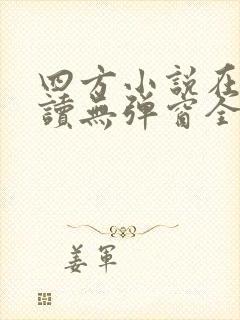 四方小說在
讀無彈窗全
姜軍